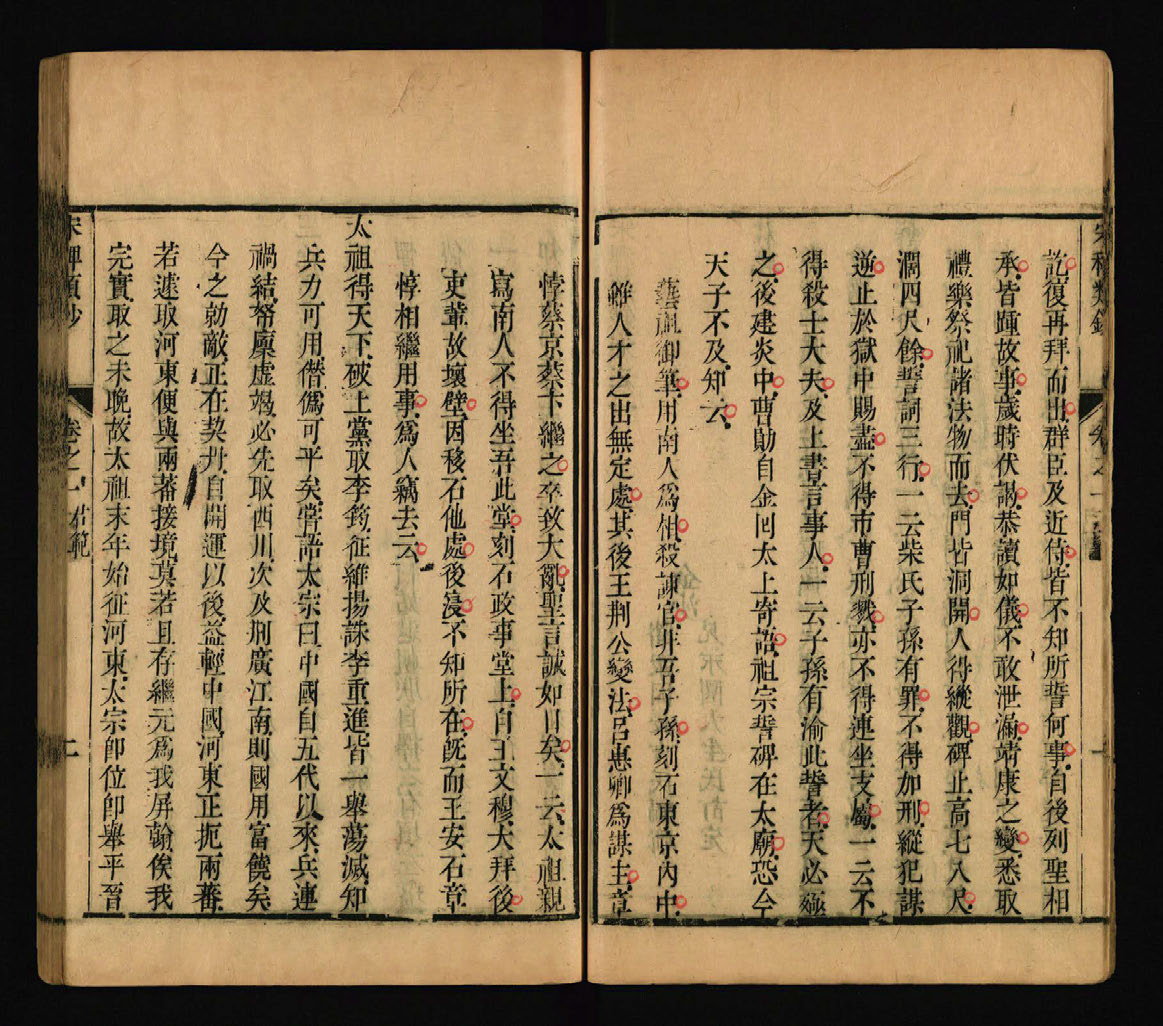 宋稗類鈔
卷之一
訖復再拜而出群臣及近侍皆不知所誓何事自後列聖相
承皆踵故事歲時伏謁恭讀如儀不敢泄漏靖康之變悉取
禮樂祭祀諸法物而去門皆洞開人得縱觀碑止高七八尺
濶四尺餘誓詞三行一云柴氏子孫有罪不得加刑縱犯謀
逆止於獄中賜盡不得市曹刑戮亦不得連坐支屬一云不
得殺士大夫及上書言事人一云子孫有渝此誓者天必殛
之後建炎中曹勛自金回太上寄語祖宗誓碑在太廟恐今
天子不及知云
藝祖御筆用南人爲相殺諫官非吾子孫刻石東京內中
雖人才之出無定處其後王荆公變法呂惠卿爲謀主章
惇蔡京蔡卞繼之卒致大亂聖言誠如日矣一云太祖親
寫南人不得坐吾此堂刻石政事堂上自王文穆大拜後
吏輩故壞壁因移石他處後浸不知所在旣而王安石章
惇相繼用事爲人竊去云
太祖得天下破上黨取李筠征維揚誅李重進皆一舉蕩滅知
兵力可用僭僞可平矣嘗語太宗曰中國自五代以來兵連
禍結帑廩虛竭必先取西川次及荆廣江南則國用富饒矣
今之勍敵正在契丹自開運以後益輕中國河東正扼兩蕃
若遽取河東便與兩蕃接境莫若且存繼元爲我屏翰俟我
完實取之未晚故太祖末年始征河東太宗卽位卽舉平晉
宋稗類鈔
卷之一 君範
二